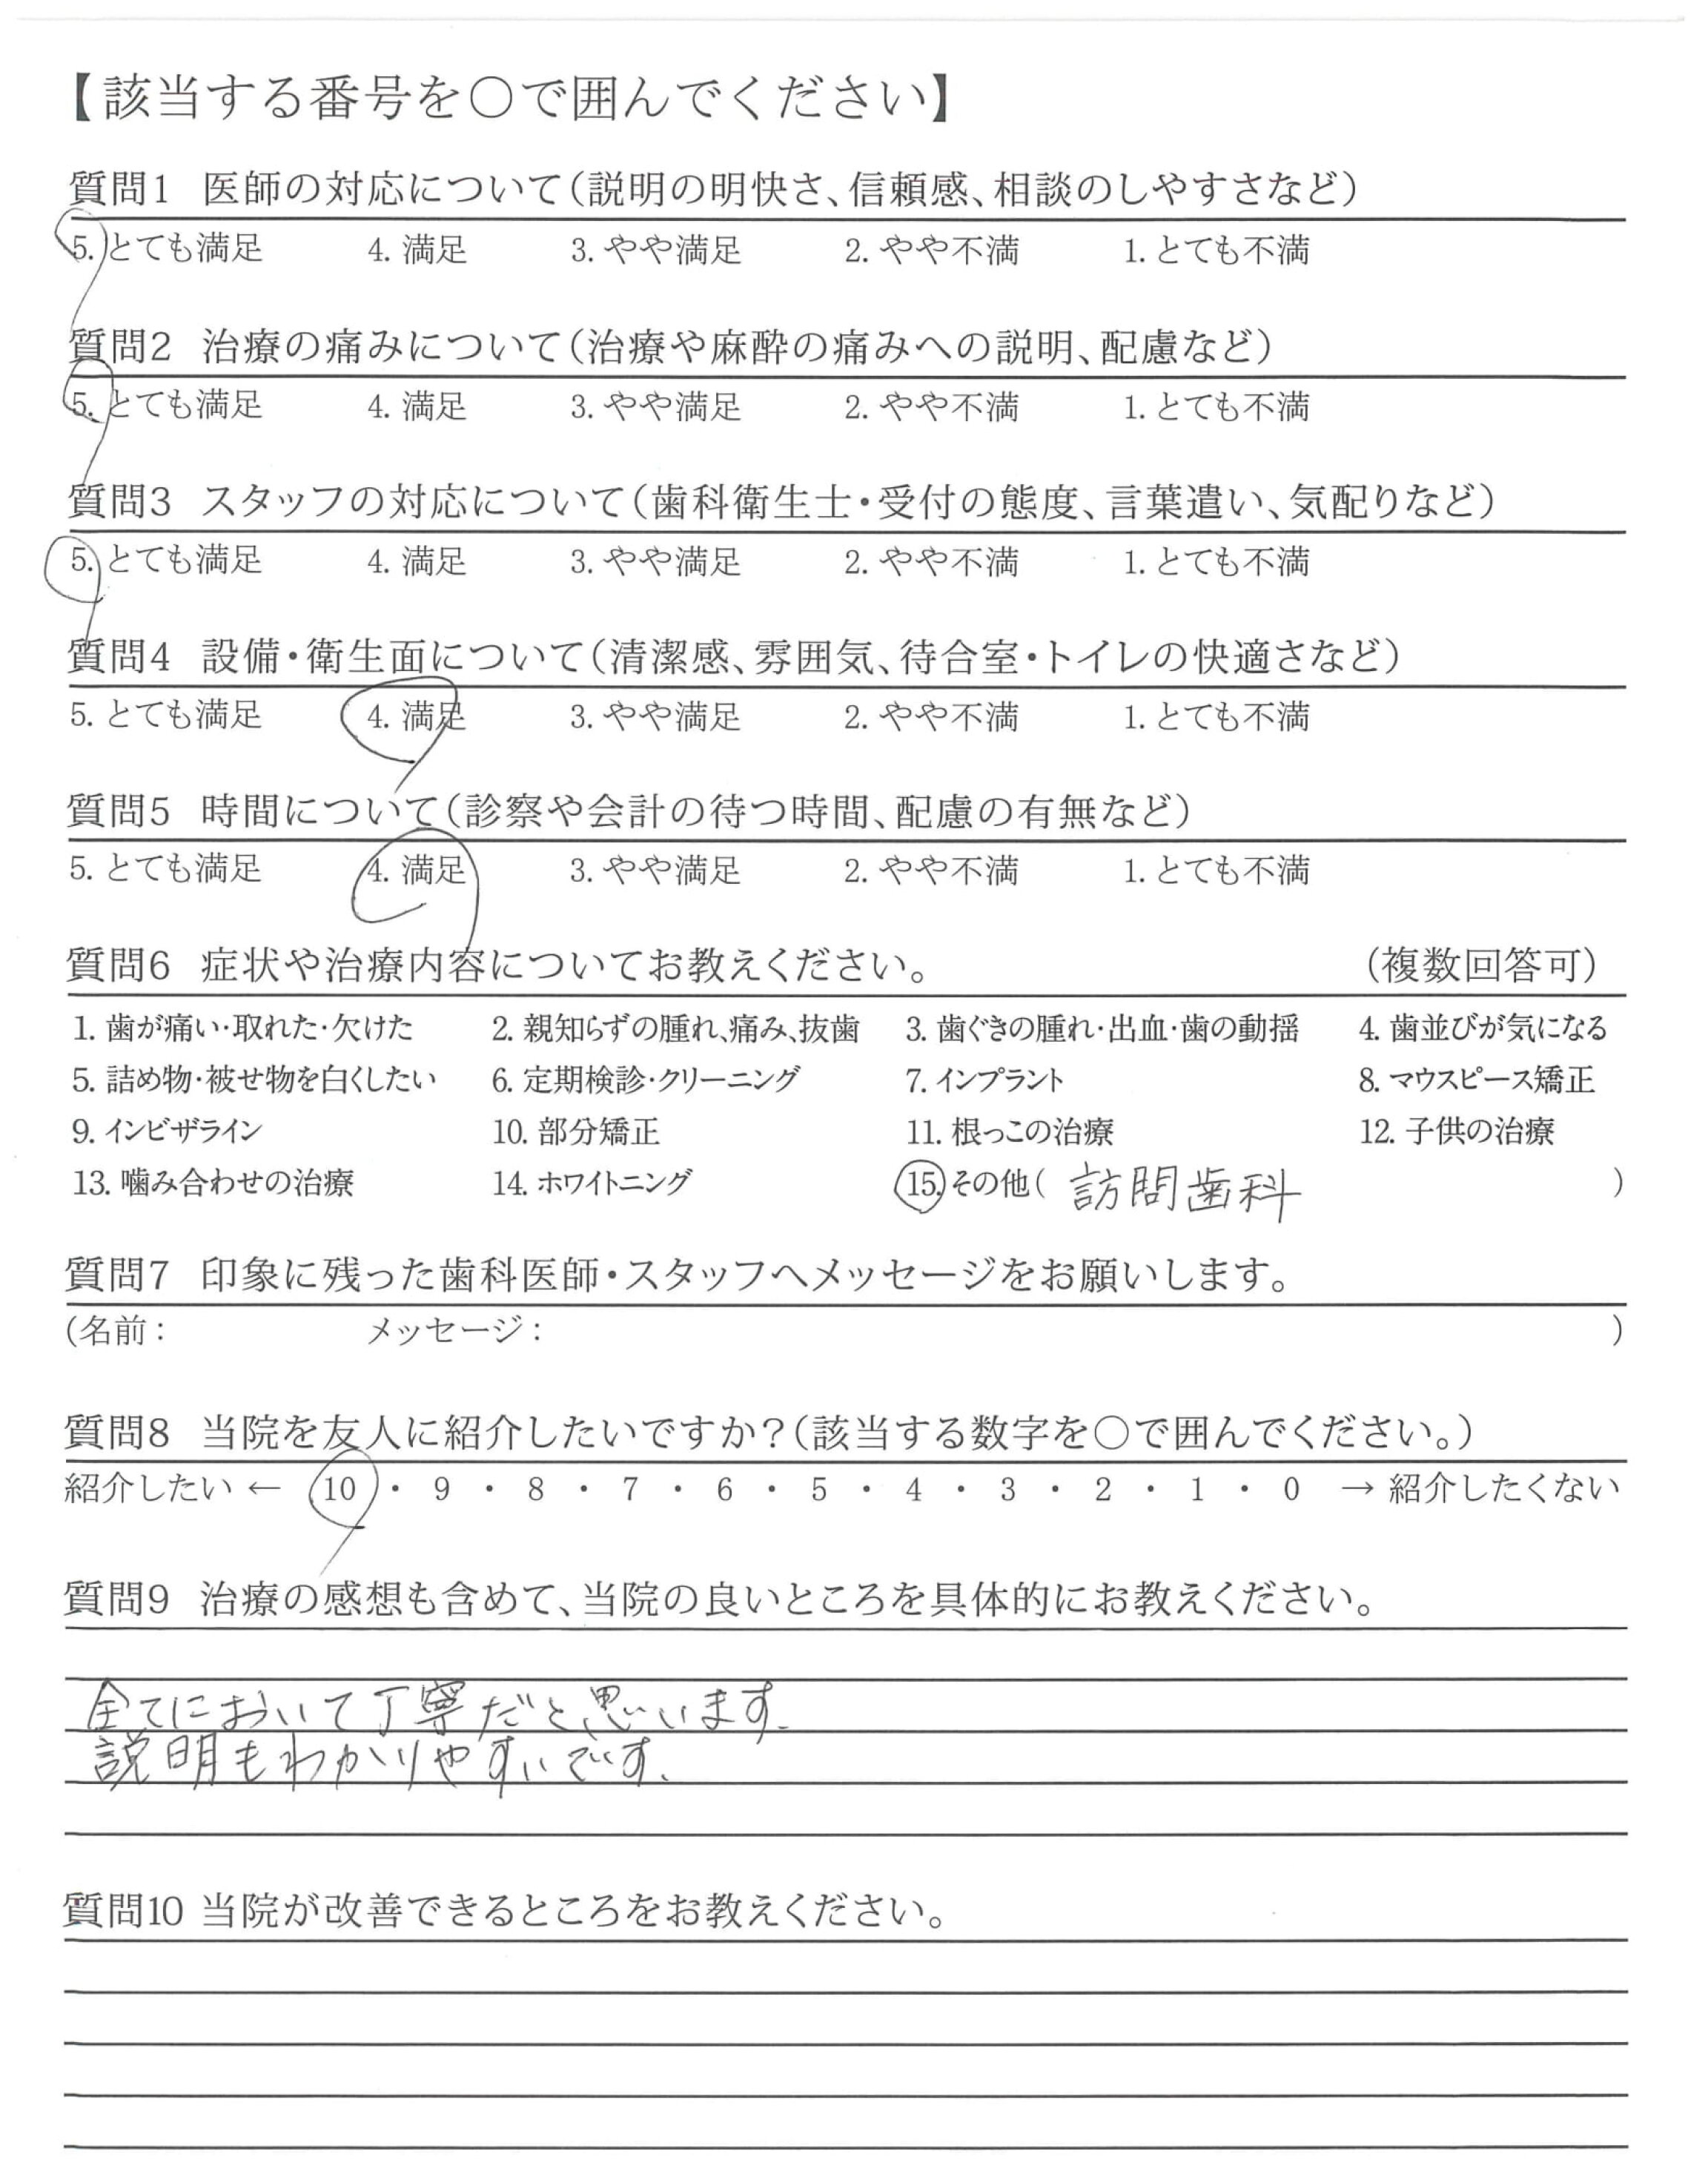 【該当する番号を○で囲んでください】
質問1 医師の対応について(説明の明快さ、信頼感、相談のしやすさなど)
5. とても満足 4. 満足 3. やや満足 2. やや不満 1. とても不満
質問2 治療の痛みについて(治療や麻酔の痛みへの説明、配慮など)
5. とても満足 4. 満足 3. やや満足 2. やや不満 1. とても不満
質問3 スタッフの対応について(歯科衛生士・受付の態度、言葉遣い、気配りなど)
5. とても満足 4. 満足 3. やや満足 2. やや不満 1. とても不満
質問4 設備・衛生面について(清潔感、雰囲気、待合室・トイレの快適さなど)
5. とても満足 4. 満足 3. やや満足 2. やや不満 1. とても不満
質問5 時間について(診察や会計の待つ時間、配慮の有無など)
5. とても満足 4. 満足 3. やや満足 2. やや不満 1. とても不満
質問6 症状や治療内容についてお教えください。 (複数回答可)
1. 歯が痛い・取れた・欠けた 2. 親知らずの腫れ、痛み、抜歯 3. 歯ぐきの腫れ・出血・歯の動揺 4. 歯並びが気になる
5. 詰め物・被せ物を白くしたい 6. 定期検診・クリーニング 7. インプラント 8. マウスピース矯正
9. インビザライン 10. 部分矯正 11. 根っこの治療 12. 子供の治療
13. 噛み合わせの治療 14. ホワイトニング 15. その他( 訪問歯科 )
質問7 印象に残った歯科医師・スタッフへメッセージをお願いします。
(名前: メッセージ: )
質問8 当院を友人に紹介したいですか?(該当する数字を○で囲んでください。)
紹介したい ← 10 ・ 9 ・ 8 ・ 7 ・ 6 ・ 5 ・ 4 ・ 3 ・ 2 ・ 1 ・ 0 → 紹介したくない
質問9 治療の感想も含めて、当院の良いところを具体的にお教えください。
全てにおいて丁寧だと思います。
説明もわかりやすいです。
質問10 当院が改善できるところをお教えください。